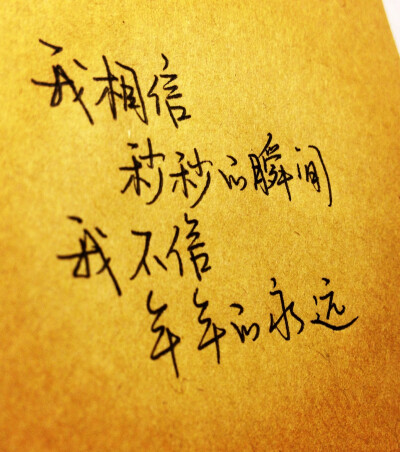 我相信
秒秒的瞬间
我不信
年年的永远